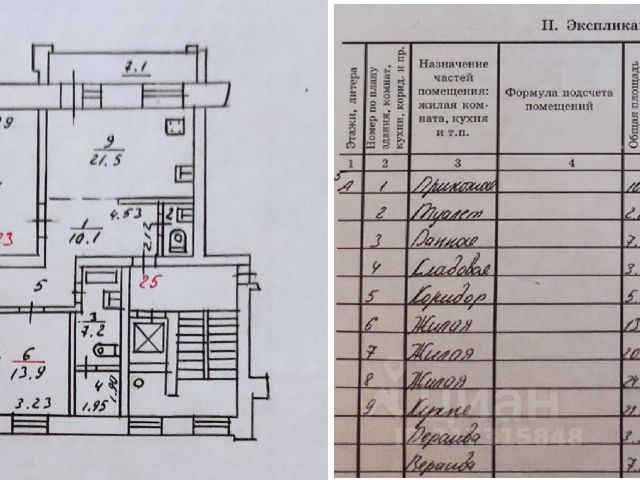 7.1
9
21.5
4.53
2
1
10.1
2.12
25
5
3
7.2
6
13.9
4
1.90
1.95
3.23
II. Экспликац
Этажи, литера
Номер по плану здания, комнат, кухни, корид. и пр.
Назначение
частей
помещения:
жилая ком-
ната, кухня
и т.п.
Формула подсчета
помещений
Общая площадь
1 2 3 4
5
А 1 Прихожая
2 Туалет 2.
3 Ванная 7.
4 Кладовая 3.
5 Коридор 5
6 Жилая 13
7 Жилая 20
8 Жилая
9 Кухне 21
Веранда 3.
Веранда 7.
циан